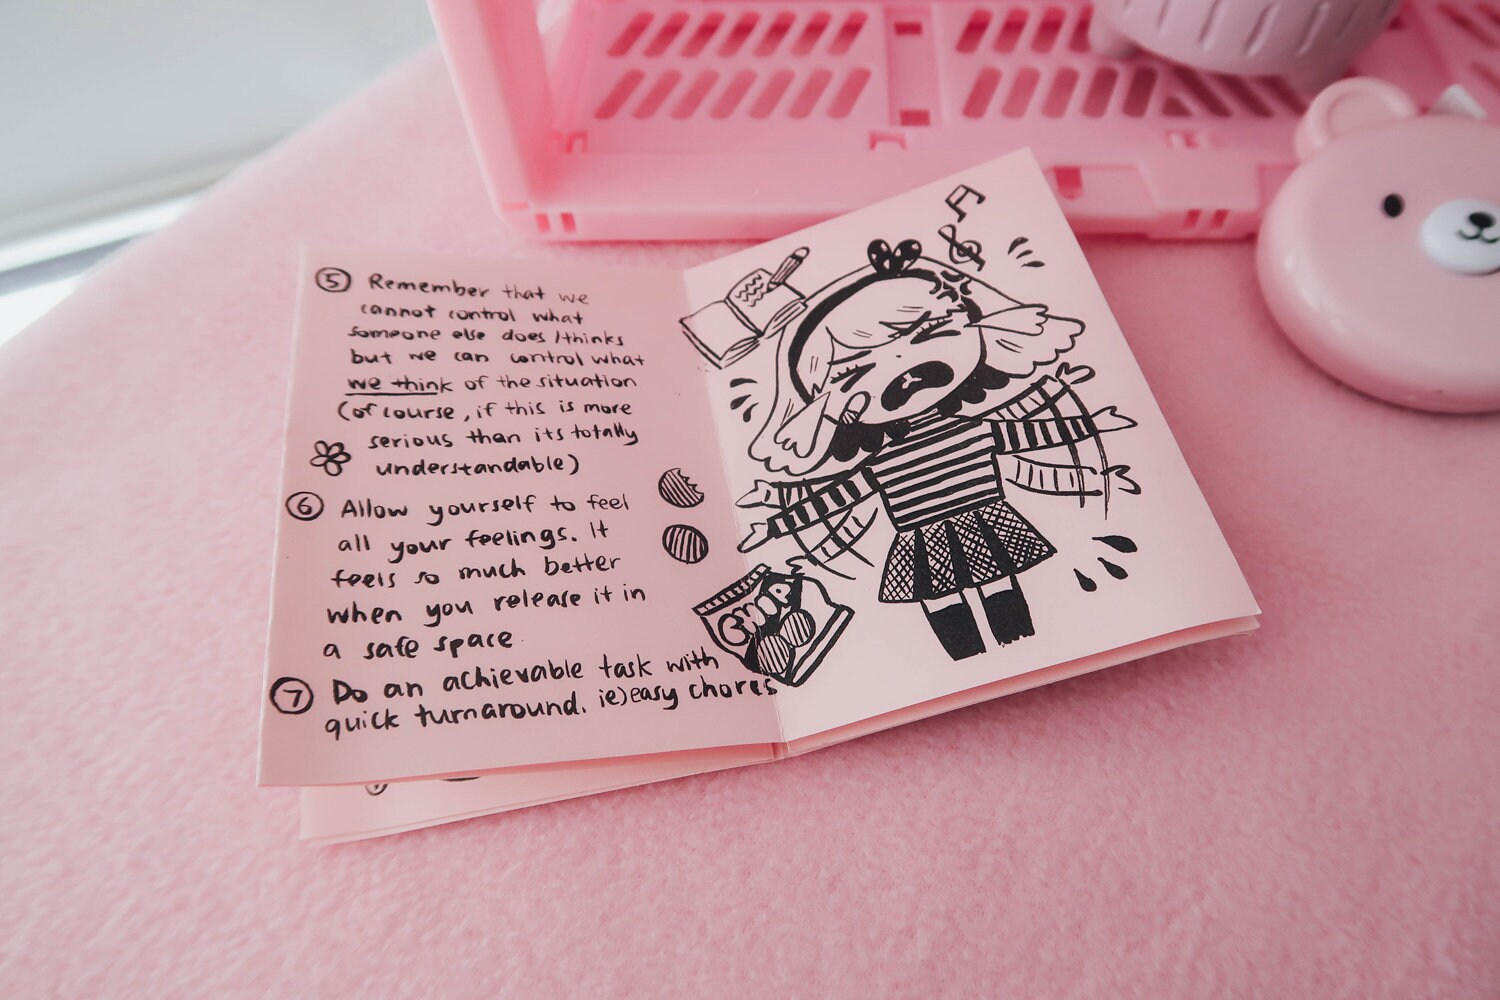 5 Remember that we
cannot control what
someone else does/thinks
but we can control what
we think of the situation
(of course, if this is more
serious than its totally
understandable)
6 Allow yourself to feel
all your feelings. It
feels so much better
when you release it in
a safe space
7 Do an achievable task with
quick turnaround. ie) easy chores
CHIP